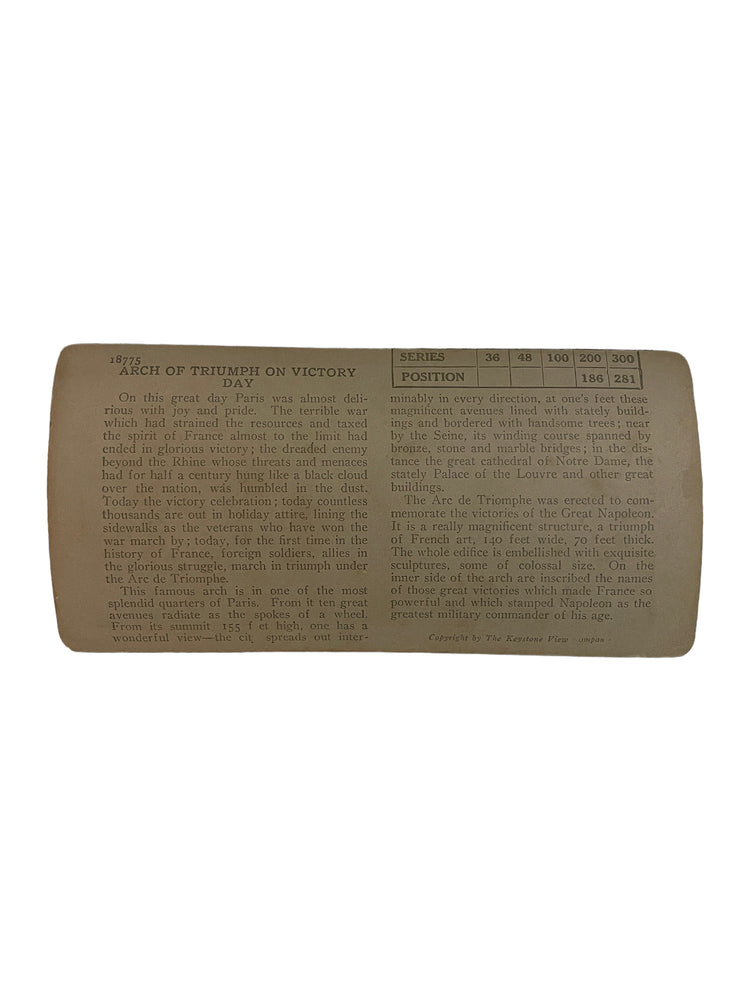 18775
ARCH OF TRIUMPH ON VICTORY
DAY
On this great day Paris was almost deli-
rious with joy and pride. The terrible war
which had strained the resources and taxed
the spirit of France almost to the limit had
ended in glorious victory; the dreaded enemy
beyond the Rhine whose threats and menaces
had for half a century hung like a black cloud
over the nation, was humbled in the dust.
Today the victory celebration; today countless
thousands are out in holiday attire, lining the
sidewalks as the veterans who have won the
war march by; today, for the first time in the
history of France, foreign soldiers, allies in
the glorious struggle, march in triumph under
the Arc de Triomphe.
This famous arch is in one of the most
splendid quarters of Paris. From it ten great
avenues radiate as the spokes of a wheel.
From its summit 155 f et high, one has a
wonderful view—the cit spreads out inter-
SERIES 36 48 100 200 300
POSITION 186 281
minably in every direction, at one's feet these
magnificent avenues lined with stately build-
ings and bordered with handsome trees; near
by the Seine, its winding course spanned by
bronze, stone and marble bridges; in the dis-
tance the great cathedral of Notre Dame, the
stately Palace of the Louvre and other great
buildings.
The Arc de Triomphe was erected to com-
memorate the victories of the Great Napoleon.
It is a really magnificent structure, a triumph
of French art, 140 feet wide, 70 feet thick.
The whole edifice is embellished with exquisite
sculptures, some of colossal size. On the
inner side of the arch are inscribed the names
of those great victories which made France so
powerful and which stamped Napoleon as the
greatest military commander of his age.
Copyright by The Keystone View ompan